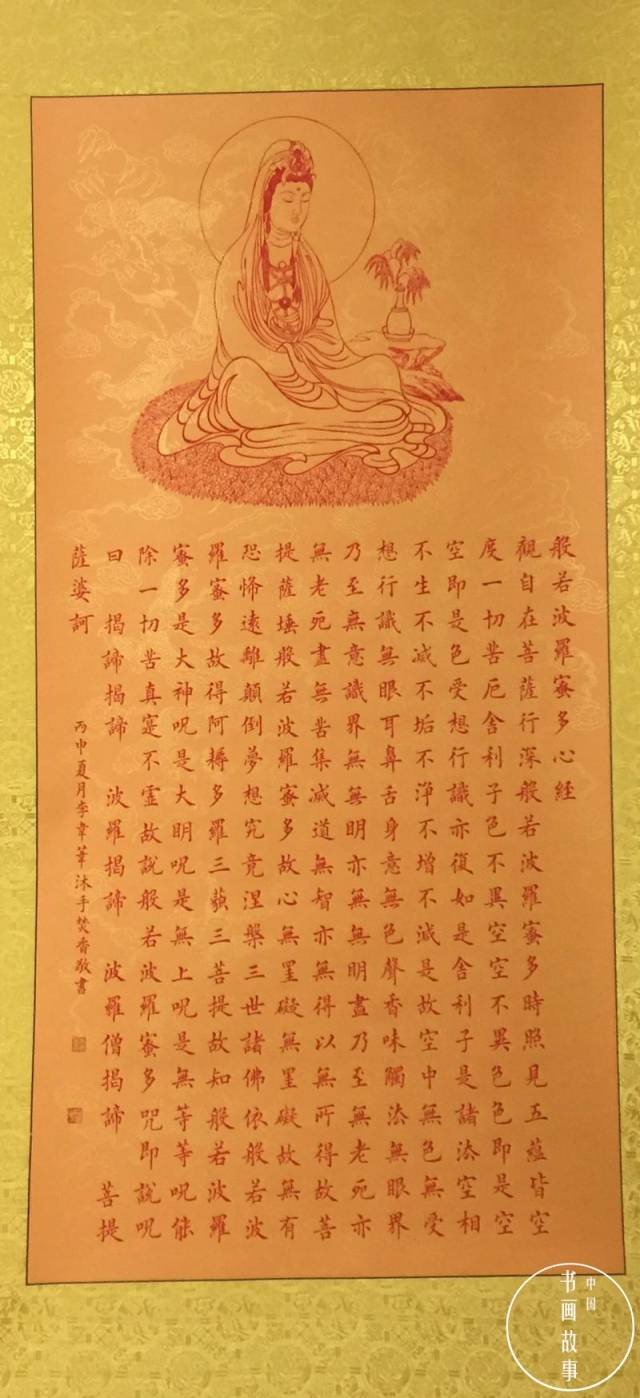 般若波羅蜜多心經
觀自在菩薩行深般若波羅蜜多時照見五蘊皆空
度一切苦厄舍利子色不異空空不異色色即是空
空即是色受想行識亦復如是舍利子是諸法空相
不生不滅不垢不淨不增不減是故空中無色無受
想行識無眼耳鼻舌身意無色聲香味觸法無眼界
乃至無意識界無無明亦無無明盡乃至無老死亦
無老死盡無苦集滅道無智亦無得以無所得故菩
提薩埵般若波羅蜜多故心無罣礙無罣礙故無有
恐怖遠離顛倒夢想究竟涅槃三世諸佛依般若波
羅蜜多故得阿耨多羅三藐三菩提故知般若波羅
蜜多是大神呪是大明呪是無上呪是無等等呪能
除一切苦真寔不虛故說般若波羅蜜多咒即說呪
曰 揭諦揭諦 波羅揭諦 波羅僧揭諦 菩提
薩婆訶
丙申夏月李韋華沐手焚香敬書
中国
书画故事